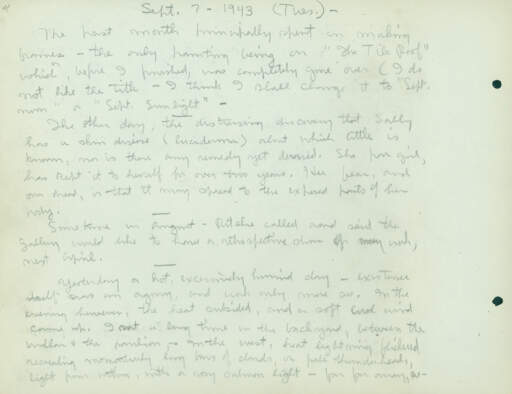 Sept. 7 - 1943 (Tues.) -
The past month principally spent in making
frames - the only painting being on "The Tile Roof"
which, before I finished, was completely gone over (I do
not like the title - I think I shall change it to "Sept.
moon" or "Sept. Sunlight" -
The other day, the distressing discovery that Sally
has a skin disease (Leucoderma) about which little is
known, nor is there any remedy yet devised. She poor girl,
has kept it to herself for over two years. Her fear, and
our dread, is that it may spread to the exposed parts of her
body.
Sometime in August - Ritchie called and said the
Gallery would like to have a retrospective show of my work,
next April.
Yesterday a hot, excessively humid day - existence
itself was an agony, and work only more so. In the
evening however, the heat subsided, and a soft cool wind
came up. I sat a long time in the backyard, between the
willow & the pavilion - In the west, heat lightning flickered
revealing momentarily long bars of clouds, or pale thunderheads,
light from within, with a rosy salmon light - far far away, or-